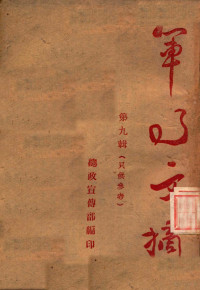 軍文摘
第九輯（只供參考）
總政宣傳部編印